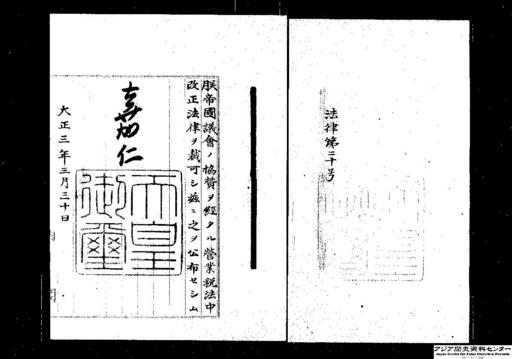 法律第二十号
朕帝國議會ノ協賛ヲ經タル營業税法中
改正法律ヲ裁可シ茲ニ之ヲ公布セシム
嘉仁
天皇
御璽
大正三年三月三十日
アジア歴史資料センター
Japan Center for Asian Historical Records